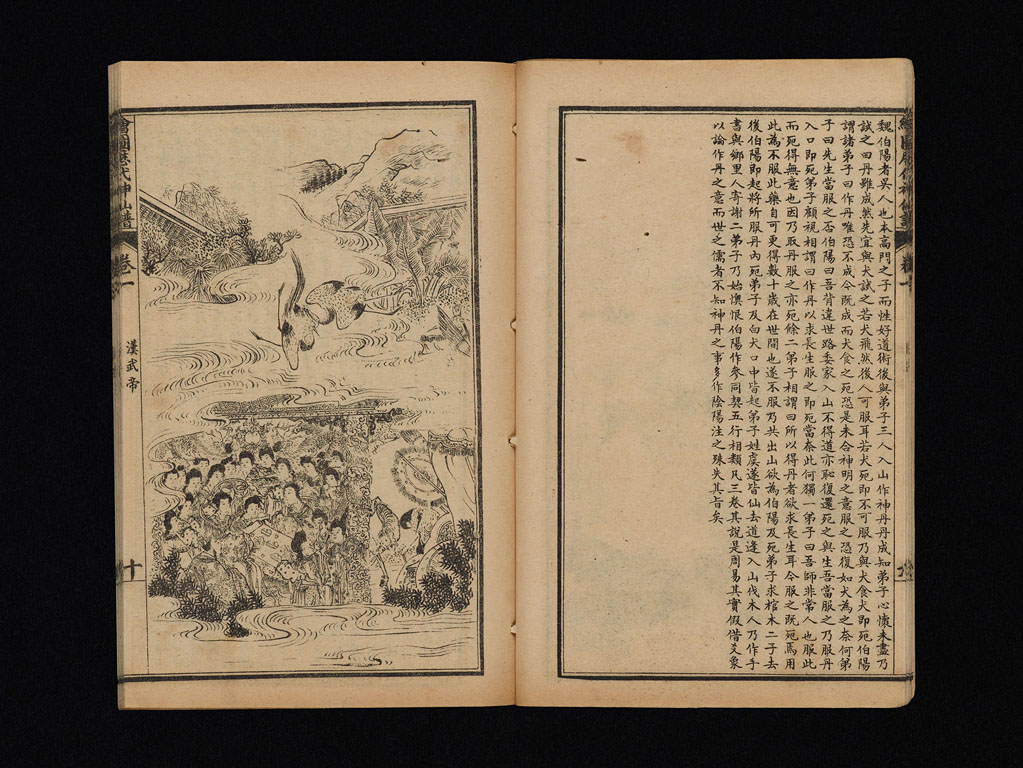 魏伯陽者吳人也本高門之子而性好道術後與弟子三人入山作神丹丹成知弟子心懷未盡乃
試之曰丹雖成然先宜與犬試之若犬飛然後人可服耳若犬死即不可服乃與犬食犬即死伯陽
謂諸弟子曰作丹唯恐不成今既成而犬食之死恐是未合神明之意服之恐復如犬為之奈何弟
子曰先生當服之否伯陽曰吾背違世路委家入山不得道亦恥復還死之與生吾當服之乃服丹
入口即死弟子顧視相謂曰作丹以求長生服之即死當奈此何獨一弟子曰吾師非常人也服此
而死得無意也因乃取丹服之亦死餘二弟子相謂曰所以得丹者欲求長生耳今服之既死焉用
此為不服此藥自可更得數十歲在世間也遂不服乃共出山欲為伯陽及死弟子求棺木二子去
後伯陽即起將所服丹內死弟子及白犬口中皆起弟子姓虞遂皆仙去道逢入山伐木人乃作手
書與鄉里人寄謝二弟子乃始懊恨伯陽作參同契五行相類凡三卷其說是周易其實假借爻象
以論作丹之意而世之儒者不知神丹之事多作陰陽注之殊失其旨矣
繪圖歷代神仙譜
卷一
漢武帝
十